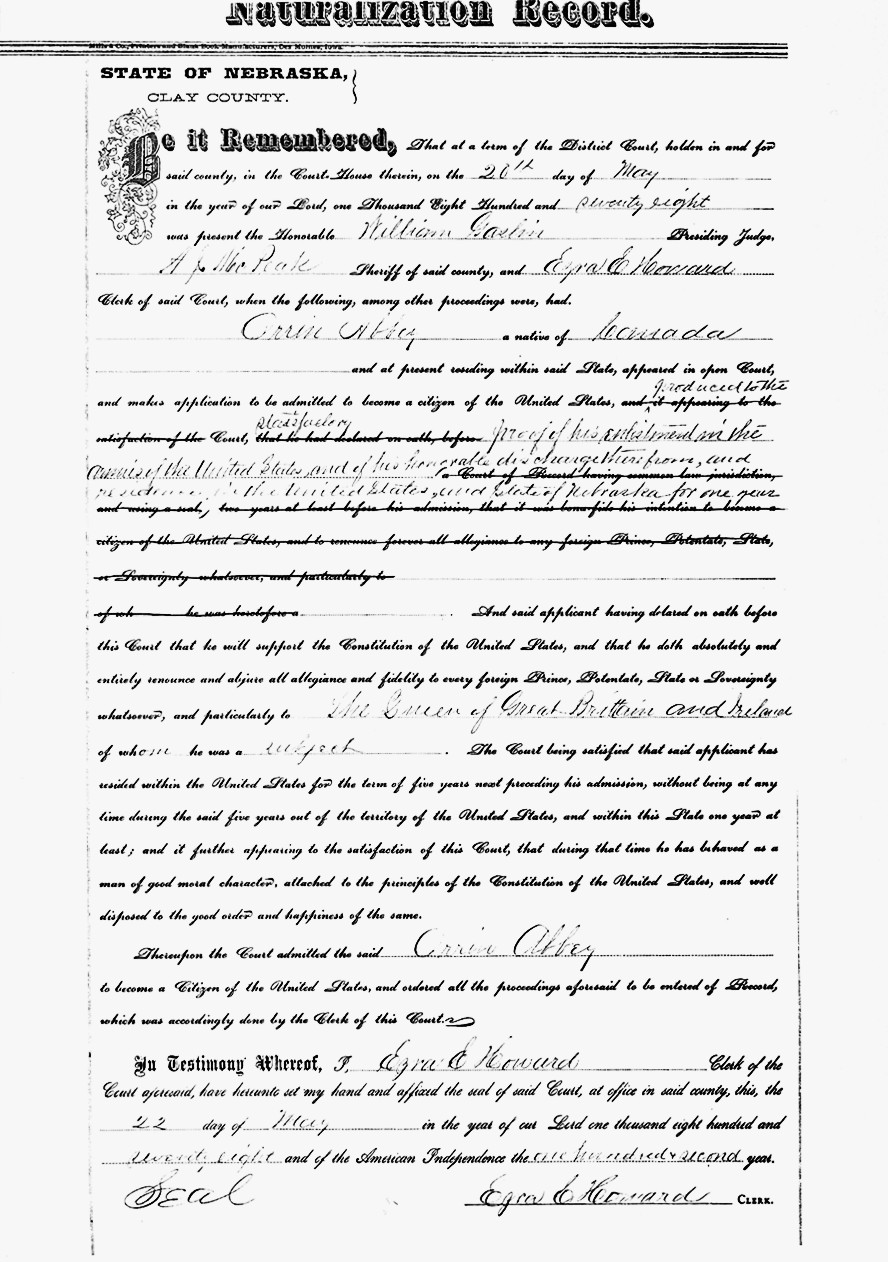 Naturalization Record.
Mills & Co., Printers and Blank Book Manufacturers, Des Moines, Iowa.
STATE OF NEBRASKA,
CLAY COUNTY.
Be it Remembered, That at a term of the District Court, holden in and for
said county, in the Court-House therein, on the 20th day of May
in the year of our Lord, one Thousand Eight Hundred and seventy eight
was present the Honorable William Gaslin Presiding Judge,
A J McPeak Sheriff of said county, and Ezra E Howard
Clerk of said Court, when the following, among other proceedings were, had.
Orrin Abbey a native of Canada
and at present residing within said State, appeared in open Court,
produced to the
and makes application to be admitted to become a citizen of the United States, and it appearing to the
satisfactory
satisfaction of the Court, that he had declared on oath, before proof of his enlistment in the
armies of the United States, and of his honorable discharge therefrom, and
(a Court of Record having common law jurisdiction,
residence in the United States, and State of Nebraska for one year
and using a seal, two years at least before his admission, that it was bona fide his intention to become a
citizen of the United States, and to renounce forever all allegiance to any foreign Prince, Potentate, State,
or Sovereignty whatsoever, and particularly to
of wh he was heretofore a . And said applicant having delared on oath before
this Court that he will support the Constitution of the United States, and that he doth absolutely and
entirely renounce and abjure all allegiance and fidelity to every foreign Prince, Potentate, State or Sovereignty
whatsoever, and particularly to The Queen of Great Brittain and Ireland
of whom he was a subject . The Court being satisfied that said applicant has
resided within the United States for the term of five years next preceding his admission, without being at any
time during the said five years out of the territory of the United States, and within this State one year at
least; and it further appearing to the satisfaction of this Court, that during that time he has behaved as a
man of good moral character, attached to the principles of the Constitution of the United States, and well
disposed to the good order and happiness of the same.
Thereupon the Court admitted the said Orrin Abbey
to become a Citizen of the United States, and ordered all the proceedings aforesaid to be entered of Record,
which was accordingly done by the Clerk of this Court.
In Testimony Whereof, I, Ezra E Howard Clerk of the
Court aforesaid, have hereunto set my hand and affixed the seal of said Court, at office in said county, this, the
22 day of May in the year of our Lord one thousand eight hundred and
seventy eight and of the American Independence the one hundred & second year.
Seal Ezra E Howard CLERK.